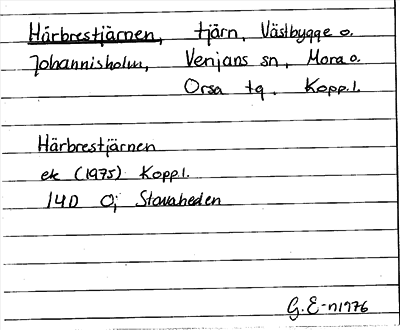 Härbrestjärnen, tjärn, Västbygge o.
Johannisholm, Venjans sn, Mora o.
Orsa tg, Kopp.l.
Härbrestjärnen
ek (1975) Kopp.l.
14D 0j Stavaheden
G.E-n 1976